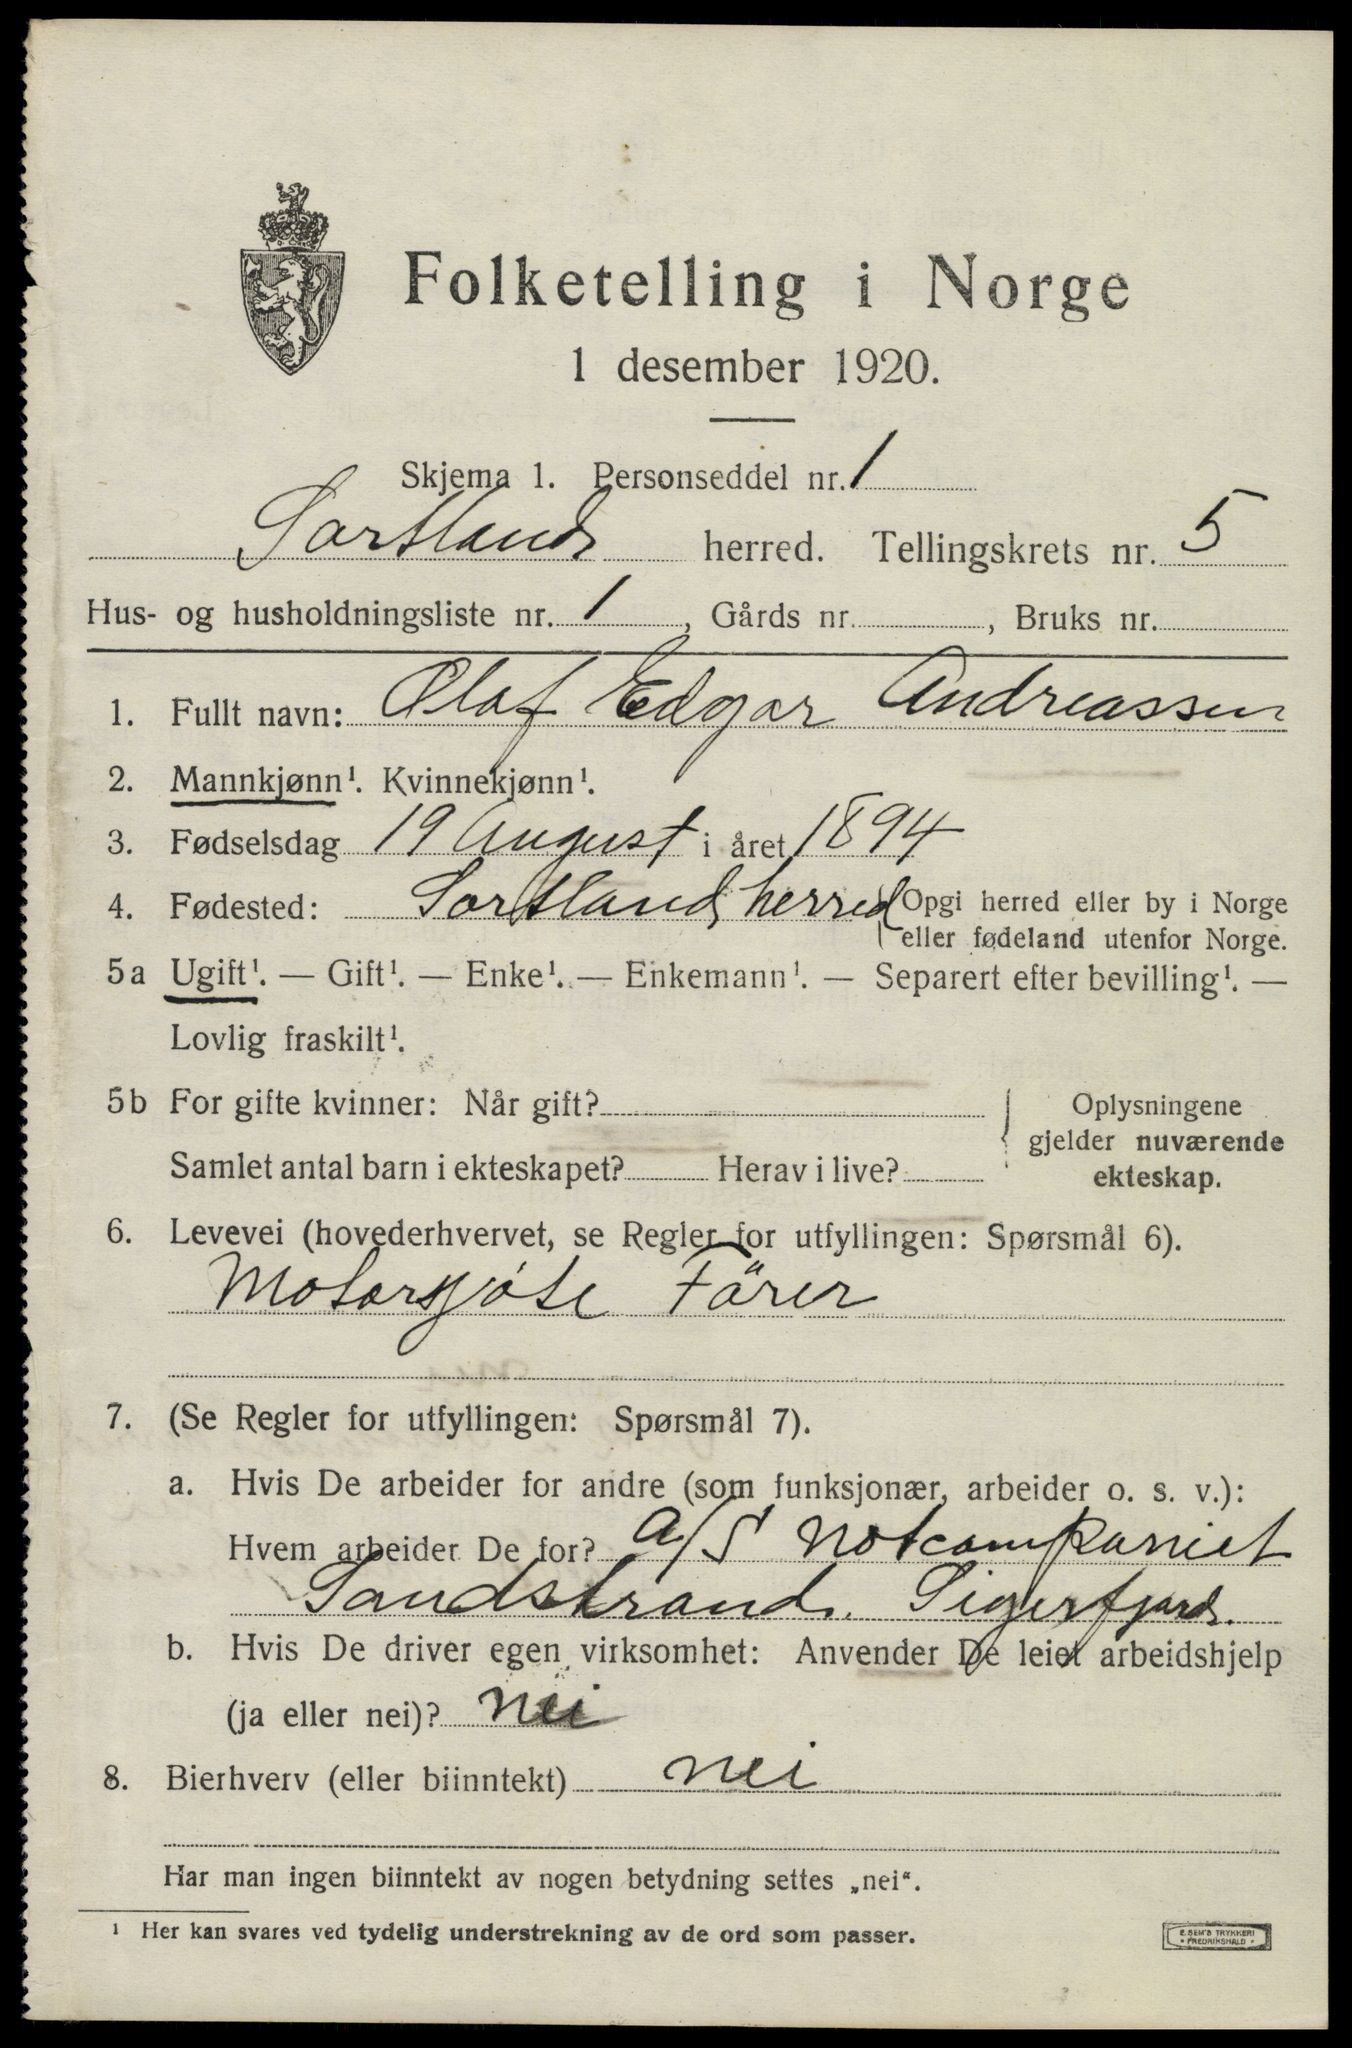 Folketelling i Norge
1 desember 1920.
Skjema 1. Personseddel nr. 1
Sortland herred. Tellingskrets nr. 5
Hus- og husholdningsliste nr. 1, Gårds nr. , Bruks nr.
1. Fullt navn: Olaf Edgar Andreassen
2. Mannkjønn¹. Kvinnekjønn¹.
3. Fødselsdag 19 August i året 1894
4. Fødested: Sortland herred Opgi herred eller by i Norge
eller fødeland utenfor Norge.
5a Ugift¹. — Gift¹. — Enke¹. — Enkemann¹. — Separert efter bevilling¹. —
Lovlig fraskilt¹.
5b For gifte kvinner: Når gift? Oplysningene
gjelder nuværende
Samlet antal barn i ekteskapet? Herav i live? ekteskap.
6. Levevei (hovederhvervet, se Regler for utfyllingen: Spørsmål 6).
Förer
7. (Se Regler for utfyllingen: Spørsmål 7).
a. Hvis De arbeider for andre (som funksjonær, arbeider o. s. v.):
Hvem arbeider De for? a/S Notcompaniet
Sandstrand. Sigerfjord.
b. Hvis De driver egen virksomhet: Anvender De leiet arbeidshjelp
(ja eller nei)? nei
8. Bierhverv (eller biinntekt) nei
Har man ingen biinntekt av nogen betydning settes „nei“.
¹ Her kan svares ved tydelig understrekning av de ord som passer.
E. SEM'S TRYKKERI
• FREDRIKSHALD •